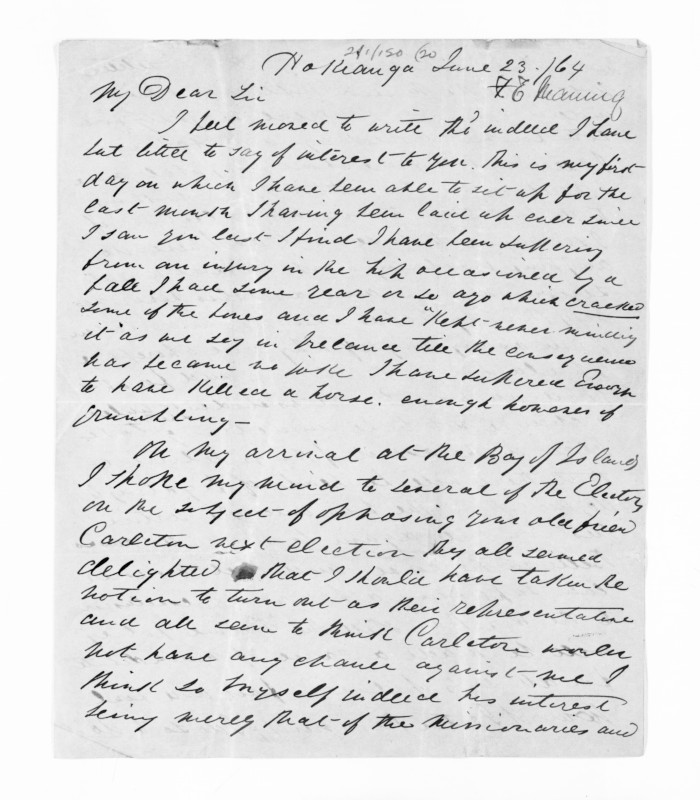 241/150 (20
Hokianga June 23./64
F E Maning
My Dear Sir
I feel moved to write tho' indeed I have
but little to say of interest to you. This is my first
day on which I have been able to sit up for the
last month I having been laid up ever since
I saw you last I find I have been suffering
from an injury in the hip occasioned by a
fall I had some year or so ago which cracked
some of the bones and I have "Kept never minding
it" as we say in Ireland till the consequence
has became no joke I have suffered Enough
to have Killed a horse. enough however of
grumbling—
On my arrival at the Bay of Islands
I spoke my mind to several of the Electors
on the subject of opposing your old friend
Carleton next election they all seemed
delighted that I should have taken the
notion to turn out as their representative
and all seem to think Carleton would
not have any chance against me I
think so myself indeed his interest
being merely that of the Missionaries and